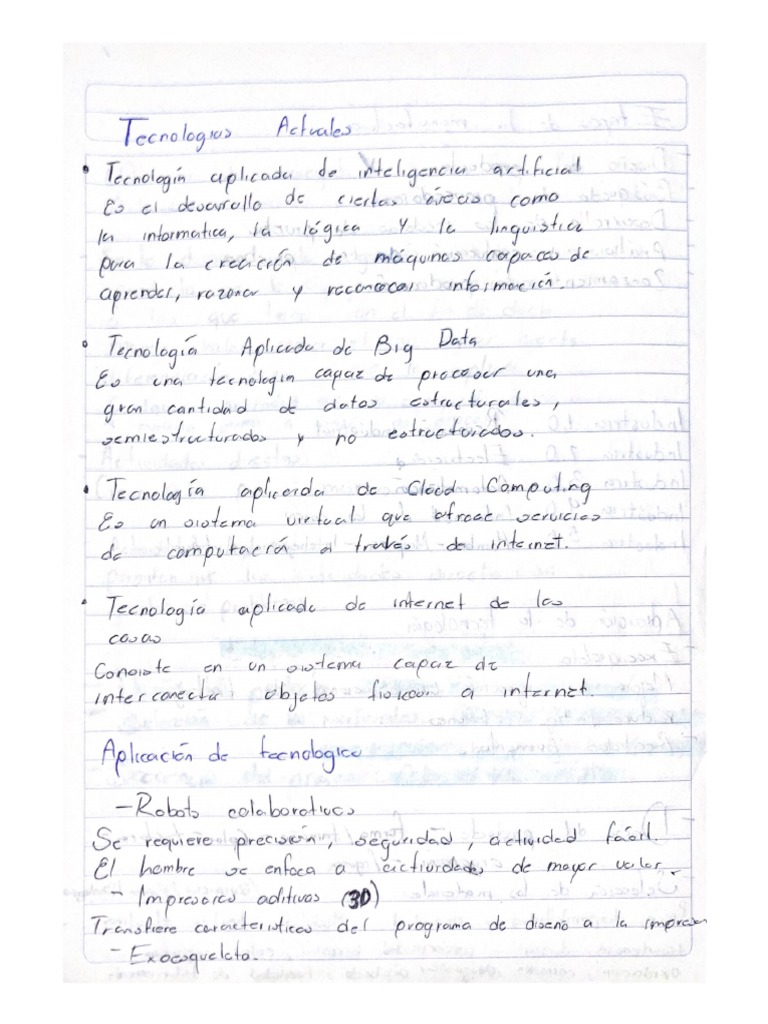 Tecnologias Actuales
• Tecnología aplicada de inteligencia artificial
Es el desarrollo de ciertas como
la informatica, la lógica y la linguistica
para la creación de máquinas capaces de
aprender, razonar y reconocer información.
• Tecnología Aplicada de Big Data
Es una tecnologia capaz de procesar una
gran cantidad de datos estructurales,
semiestructurados y no estructurados.
• Tecnología aplicada de Cloud Computing
Es un sistema virtual que ofrece servicios
de a través de internet.
• Tecnología aplicada de internet de las
cosas
Consiste en un sistema capaz de
interconectar objetos fisicos a internet.
Aplicación de tecnologico
- Robots colaborativos
Se requiere precisión, seguridad, actividad fácil.
El hombre se enfoca a actividades de mayor valor.
- Impresores aditivas (3D)
Transfiere caracteristicas del programa de diseño a la impresor
- Exoesqueleto.